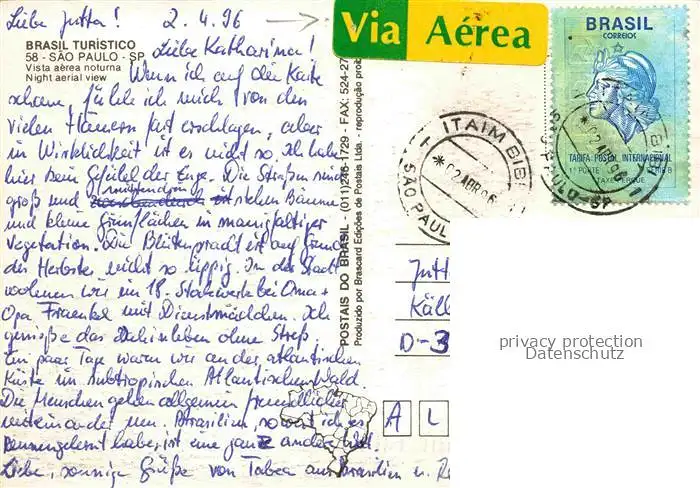 Liebe Jutta! 2.4.96
BRASIL TURÍSTICO
58 - SÃO PAULO - SP
Vista aérea noturna
Night aerial view
Liebe Katharina!
Wenn ich auf die Karte
schaue, fühle ich mich von den
vielen Häusern fast erschlagen, aber
in Wirklichkeit ist es nicht so. Ich habe
hier kein Gefühl der Enge. Die Straßen sind
groß und stehen Bäume
und kleine Grünflächen in mannigfaltiger
Vegetation. Die Blütenpracht ist auf Grund
des Herbstes nicht so üppig. In der Stadt
wohnen wir im 18. Stockwerk bei Oma +
Opa Fraenkel mit Dienstmädchen. Ich
genieße das Dahinleben ohne Streß.
Ein paar Tage waren wir an der atlantischen
Küste im subtropischen Atlantischen Wald.
Die Menschen gehen allgemein freundlicher
miteinander um. Brasilien, so weit ich es
kennengelernt habe, ist eine ganz andere Welt.
Liebe, sonnige Grüße von Tabea aus Brasilien u.
POSTAIS DO BRASIL
Produzido por Brascard Edições de Postais Ltda. - reprodução proibida
Via Aérea
BRASIL
CORREIOS
TARIFA POSTAL INTERNACIONAL
1º PORTE
ITAIM BIBI
*02 APR 96
SÃO PAULO
02 APR 96
SÃO PAULO-SP
Jutt
Käll
D-3
A L
privacy protection
Datenschutz